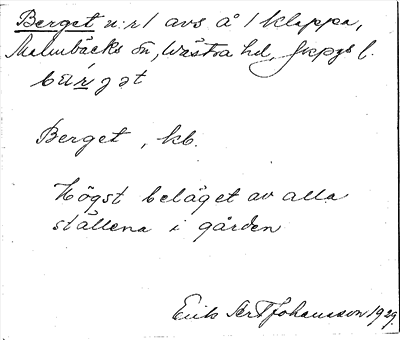 Berget n:r 1 avs å 1 Klappa,
Malmbäcks sn, Västra hd, Jkpgs l.
bárjət
Berget, kb.
Högst beläget av alla
ställena i gården
Erik Johansson 1929.